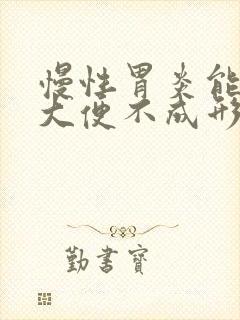 慢性胃炎能
大便不成形
勤書寶